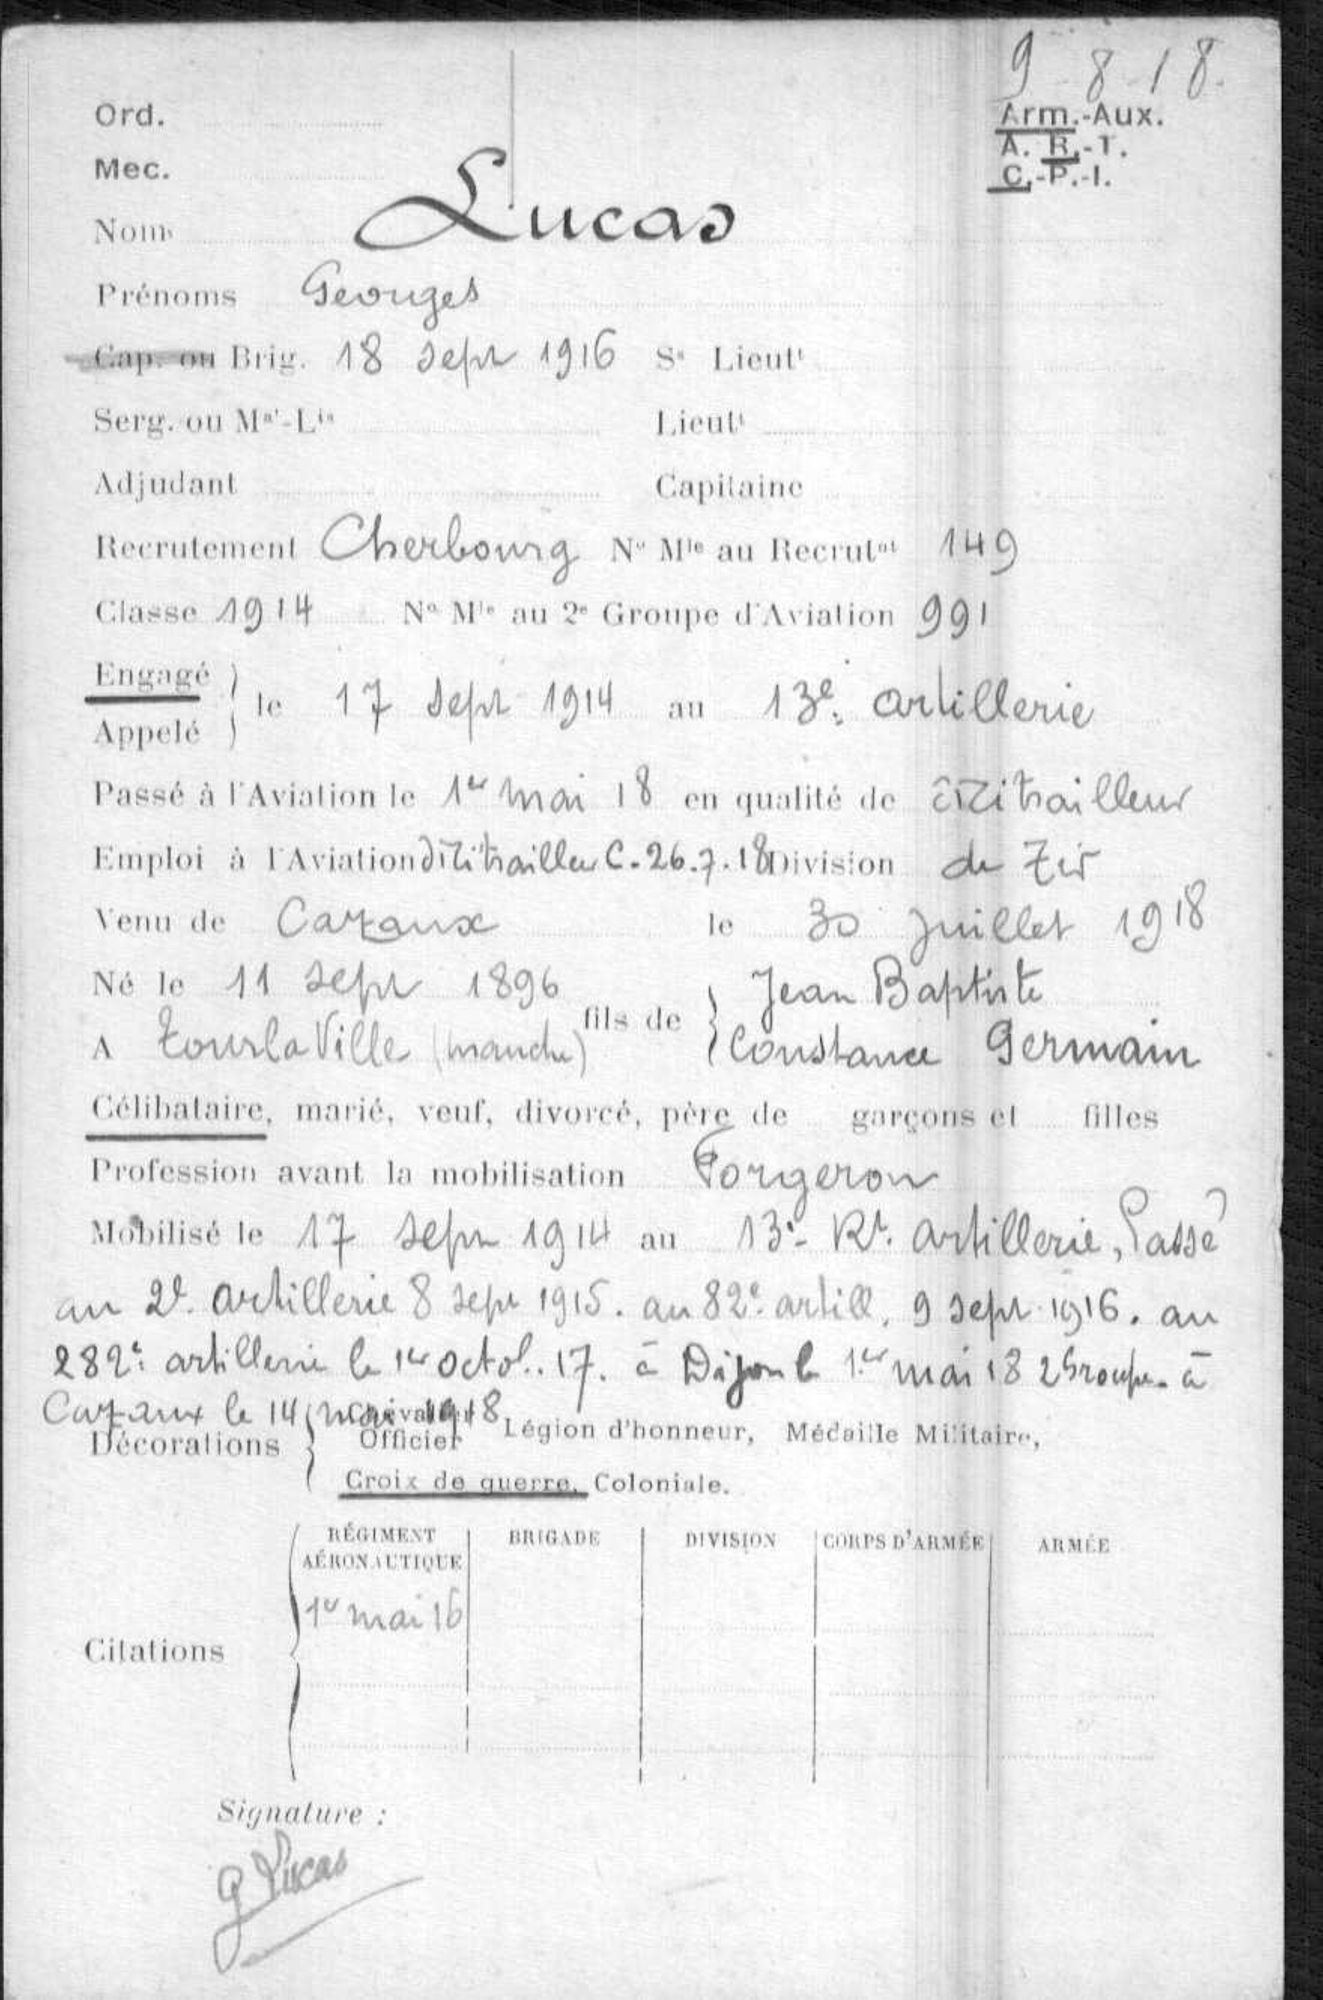 9-8-18.
Ord.
Arm.-Aux.
A. R.-T.
Mec.
C.-P.-I.
Nom Lucas
Prénoms Georges
Cap. ou Brig. 18 sept 1916 Sˢ Lieutᵗ
Serg. ou Mᵃˡ-Lⁱˢ Lieutᵗ
Adjudant Capitaine
Recrutement Cherbourg Nº Mˡᵉ au Recrutᵉᵗ 149
Classe 1914 Nº Mˡᵉ au 2ᵉ Groupe d'Aviation 991
Engagé
le 17 sept 1914 au 13ᵉ. artillerie
Appelé
Passé à l'Aviation le 1ᵉʳ mai 18 en qualité de Mitrailleur
Emploi à l'Aviation Mitrailleur C. 26.7.18 Division de Tir
Venu de Cazaux le 30 juillet 1918
Né le 11 sept 1896 fils de Jean Baptiste
A Tourlaville (manche) Constance Germain
Célibataire, marié, veuf, divorcé, père de garçons et filles
Profession avant la mobilisation Forgeron
Mobilisé le 17 sept 1914 au 13ᵉ Rᵗ. artillerie, Passé
au 2ᵉ. artillerie 8 sept 1915. au 82ᵉ. artill. 9 sept 1916. au
282ᵉ. artillerie le 1ᵉʳ octob. 17. à Dijon le 1ᵉʳ mai 18 2 Groupe. à
Cazaux le 14 mai 1918.
Chevalier
Décorations Officier Légion d'honneur, Médaille Militaire,
Croix de guerre, Coloniale.
RÉGIMENT AÉRONAUTIQUE BRIGADE DIVISION CORPS D'ARMÉE ARMÉE
1ᵉʳ mai 16
Citations
Signature :
G Lucas